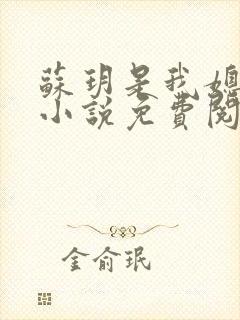 蘇玥是我媳
小說免費閱
金俞珉